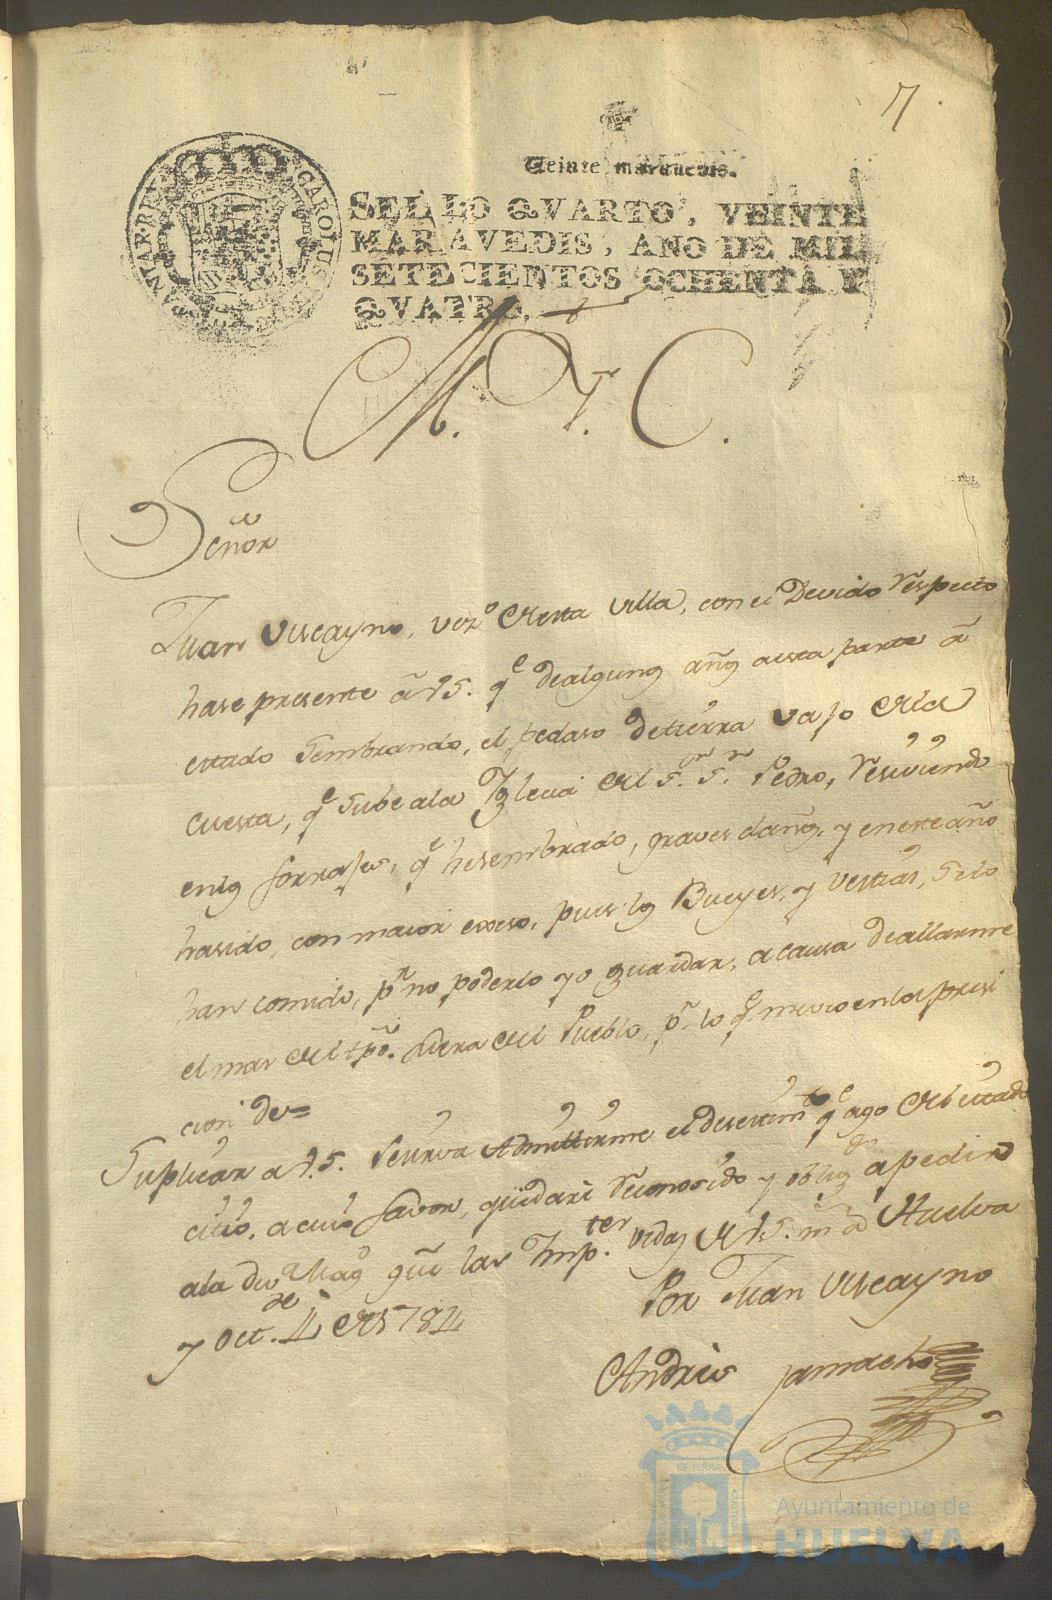 7
Veinte maravedis.
SELLO QVARTO, VEINTE
MARAVEDIS, AÑO DE MIL
SETECIENTOS OCHENTA Y
QVATRO.
CAROLUS
M. Y. C.
Señor
Juan Viscayno, vezº de esta villa, con el Devido respecto
hase presente â VS. qe de algunos años a esta parte â
estado sembrando, el pedaso de tierra vajo de la
cuesta, qe sube a la Yglecia del Sor Sn Pedro, resiviendo
en los forrajes, qe ha sembrado, graves daños, y en este año
ha sido, con maior exceso, pues los Bueyes, y vestias, se lo
han comido, pr no poderlo yo guardar, a causa de allarme
el mas del tpô. fuera del Pueblo, pr lo qe me veo en la presi
cion de=
Suplicar a VS. se sirva Admitirme el desestimto qe ago del citado
citio, a cuio favor, quedarè reconosido y obligdo a pedir
a la Diva Magd que las Impters vidas de VS. ms as Huelva
y Octe 4 de 1784
Por Juan Viscayno
Andres Camacho
Ayuntamiento de
HUELVA